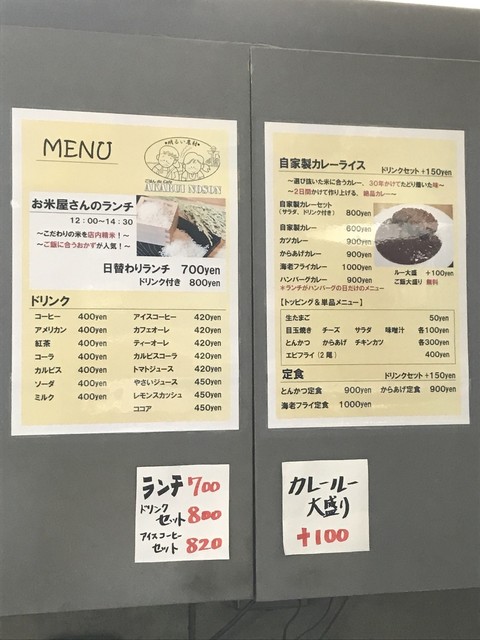 MENU
明るい農村
AKARUI NOSON
お米屋さんのランチ
12:00〜14:30
〜こだわりの米を店内精米！〜
〜ご飯に合うおかずが人気！〜
日替わりランチ 700yen
ドリンク付き 800yen
ドリンク
コーヒー 400yen アイスコーヒー 420yen
アメリカン 400yen カフェオーレ 420yen
紅茶 400yen ティーオーレ 420yen
コーラ 400yen カルピスコーラ 420yen
カルピス 400yen トマトジュース 420yen
ソーダ 400yen やさいジュース 450yen
ミルク 400yen レモンスカッシュ 450yen
ココア 450yen
自家製カレーライス ドリンクセット +150yen
〜選び抜いた米に合うカレー、30年かけてたどり着いた味〜
〜2日間かけて作り上げる、絶品カレー〜
自家製カレーセット
(サラダ、ドリンク付き) 800yen
自家製カレー 600yen
カツカレー 900yen
からあげカレー 900yen
海老フライカレー 1000yen
ハンバーグカレー 900yen
*ランチがハンバーグの日だけのメニュー
ルー大盛 +100yen
ご飯大盛り 無料
【トッピング＆単品メニュー】
生たまご 50yen
目玉焼き チーズ サラダ 味噌汁 各100yen
とんかつ からあげ チキンカツ 各300yen
エビフライ(2尾) 400yen
定食 ドリンクセット +150yen
とんかつ定食 900yen からあげ定食 900yen
海老フライ定食 1000yen
ランチ 700
ドリンク
セット 800
アイスコーヒー
セット 820
カレールー
大盛り
+100